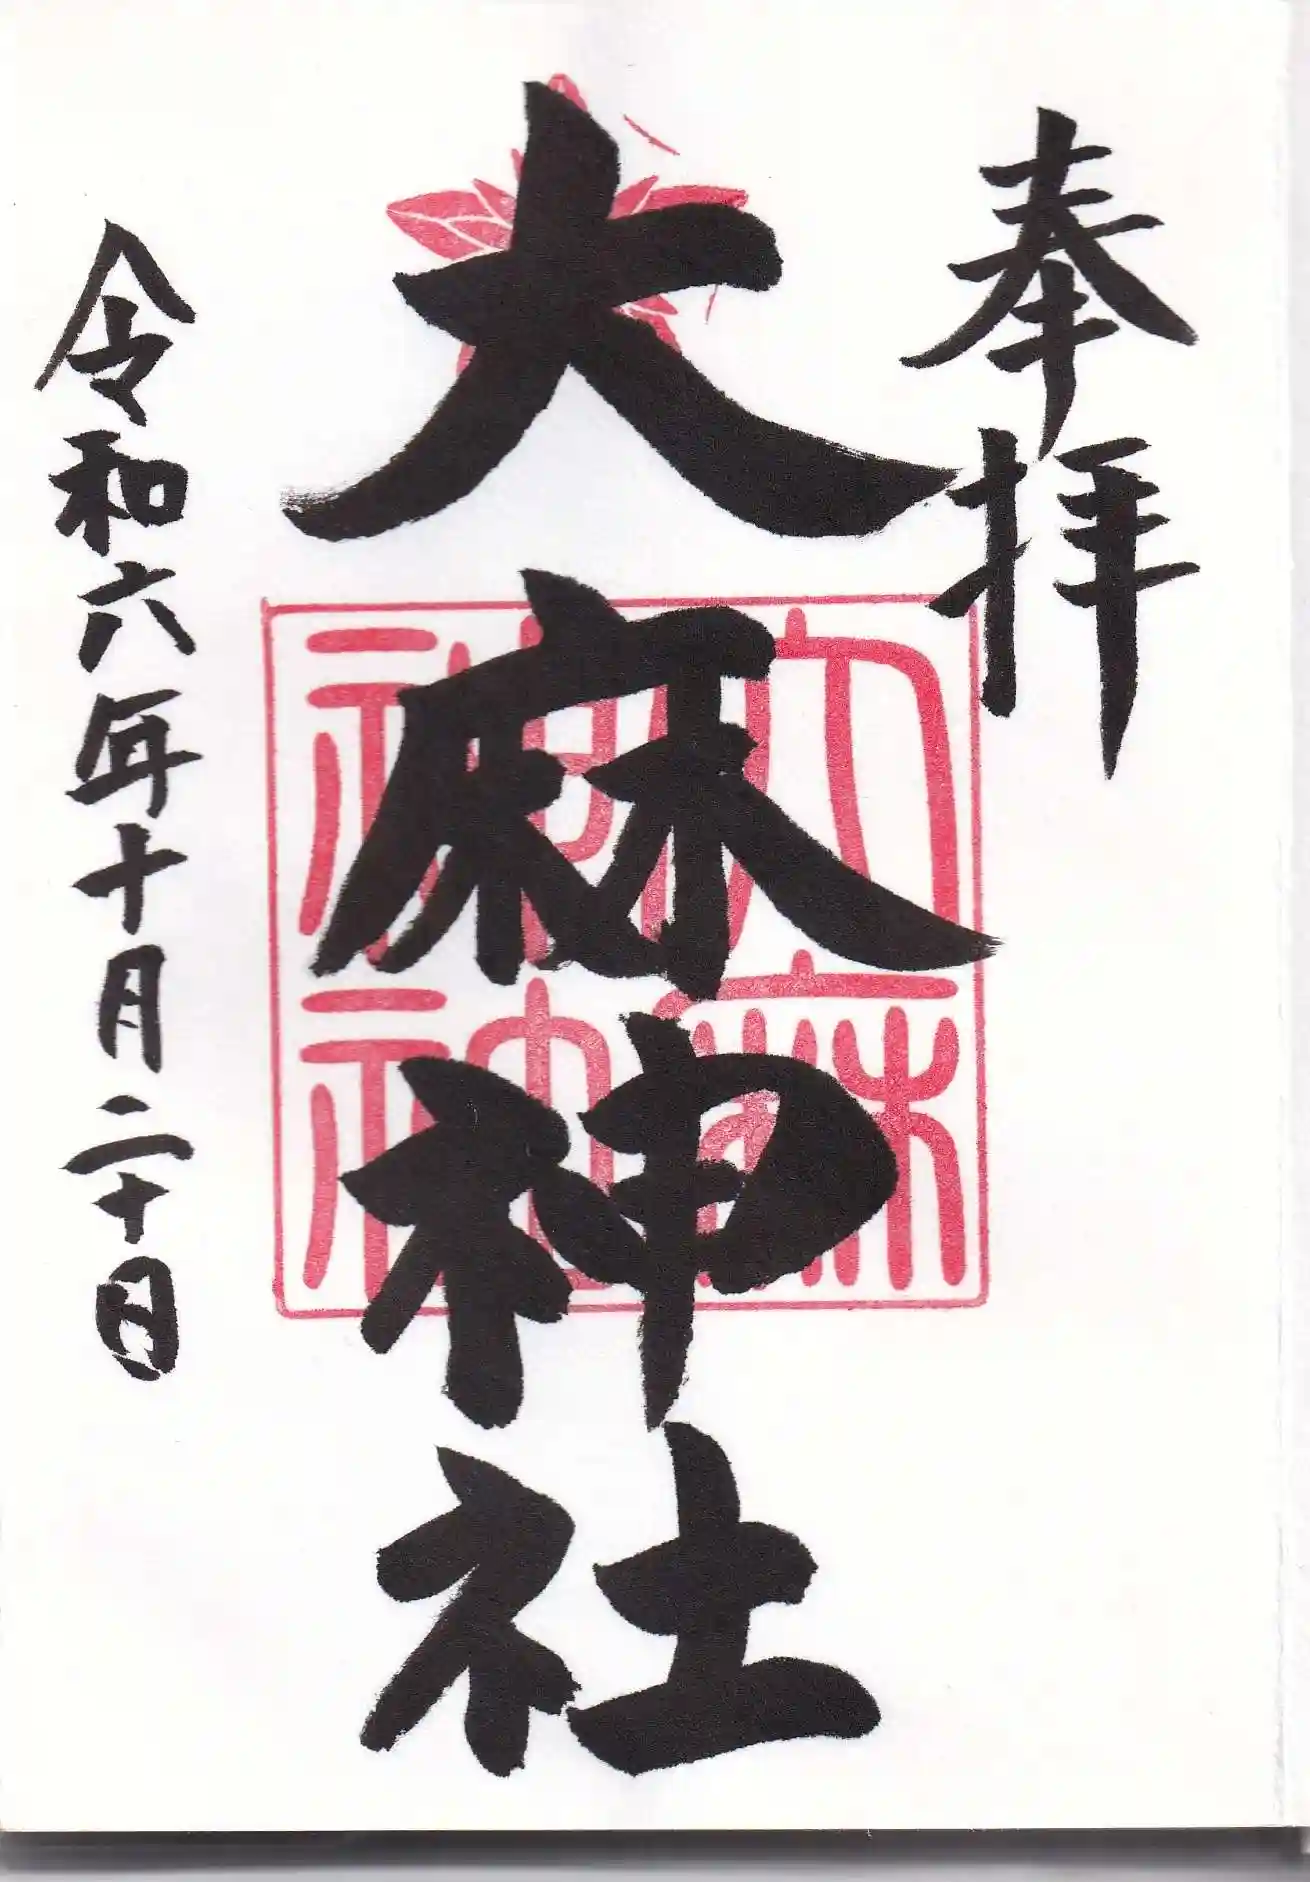 奉拝
大麻神社
令和六年十月二十日
大麻
神社